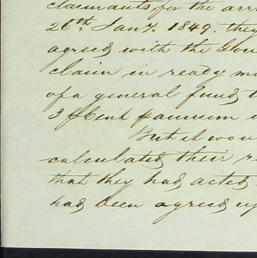 claimants for the arr
26th Jany. 1849. they
agreed with the Gov
claim in ready mo
of a general fund t
3 ℔ Cent ℔ annum i
But it wou
calculated their r
that they had acted
had been agreed up